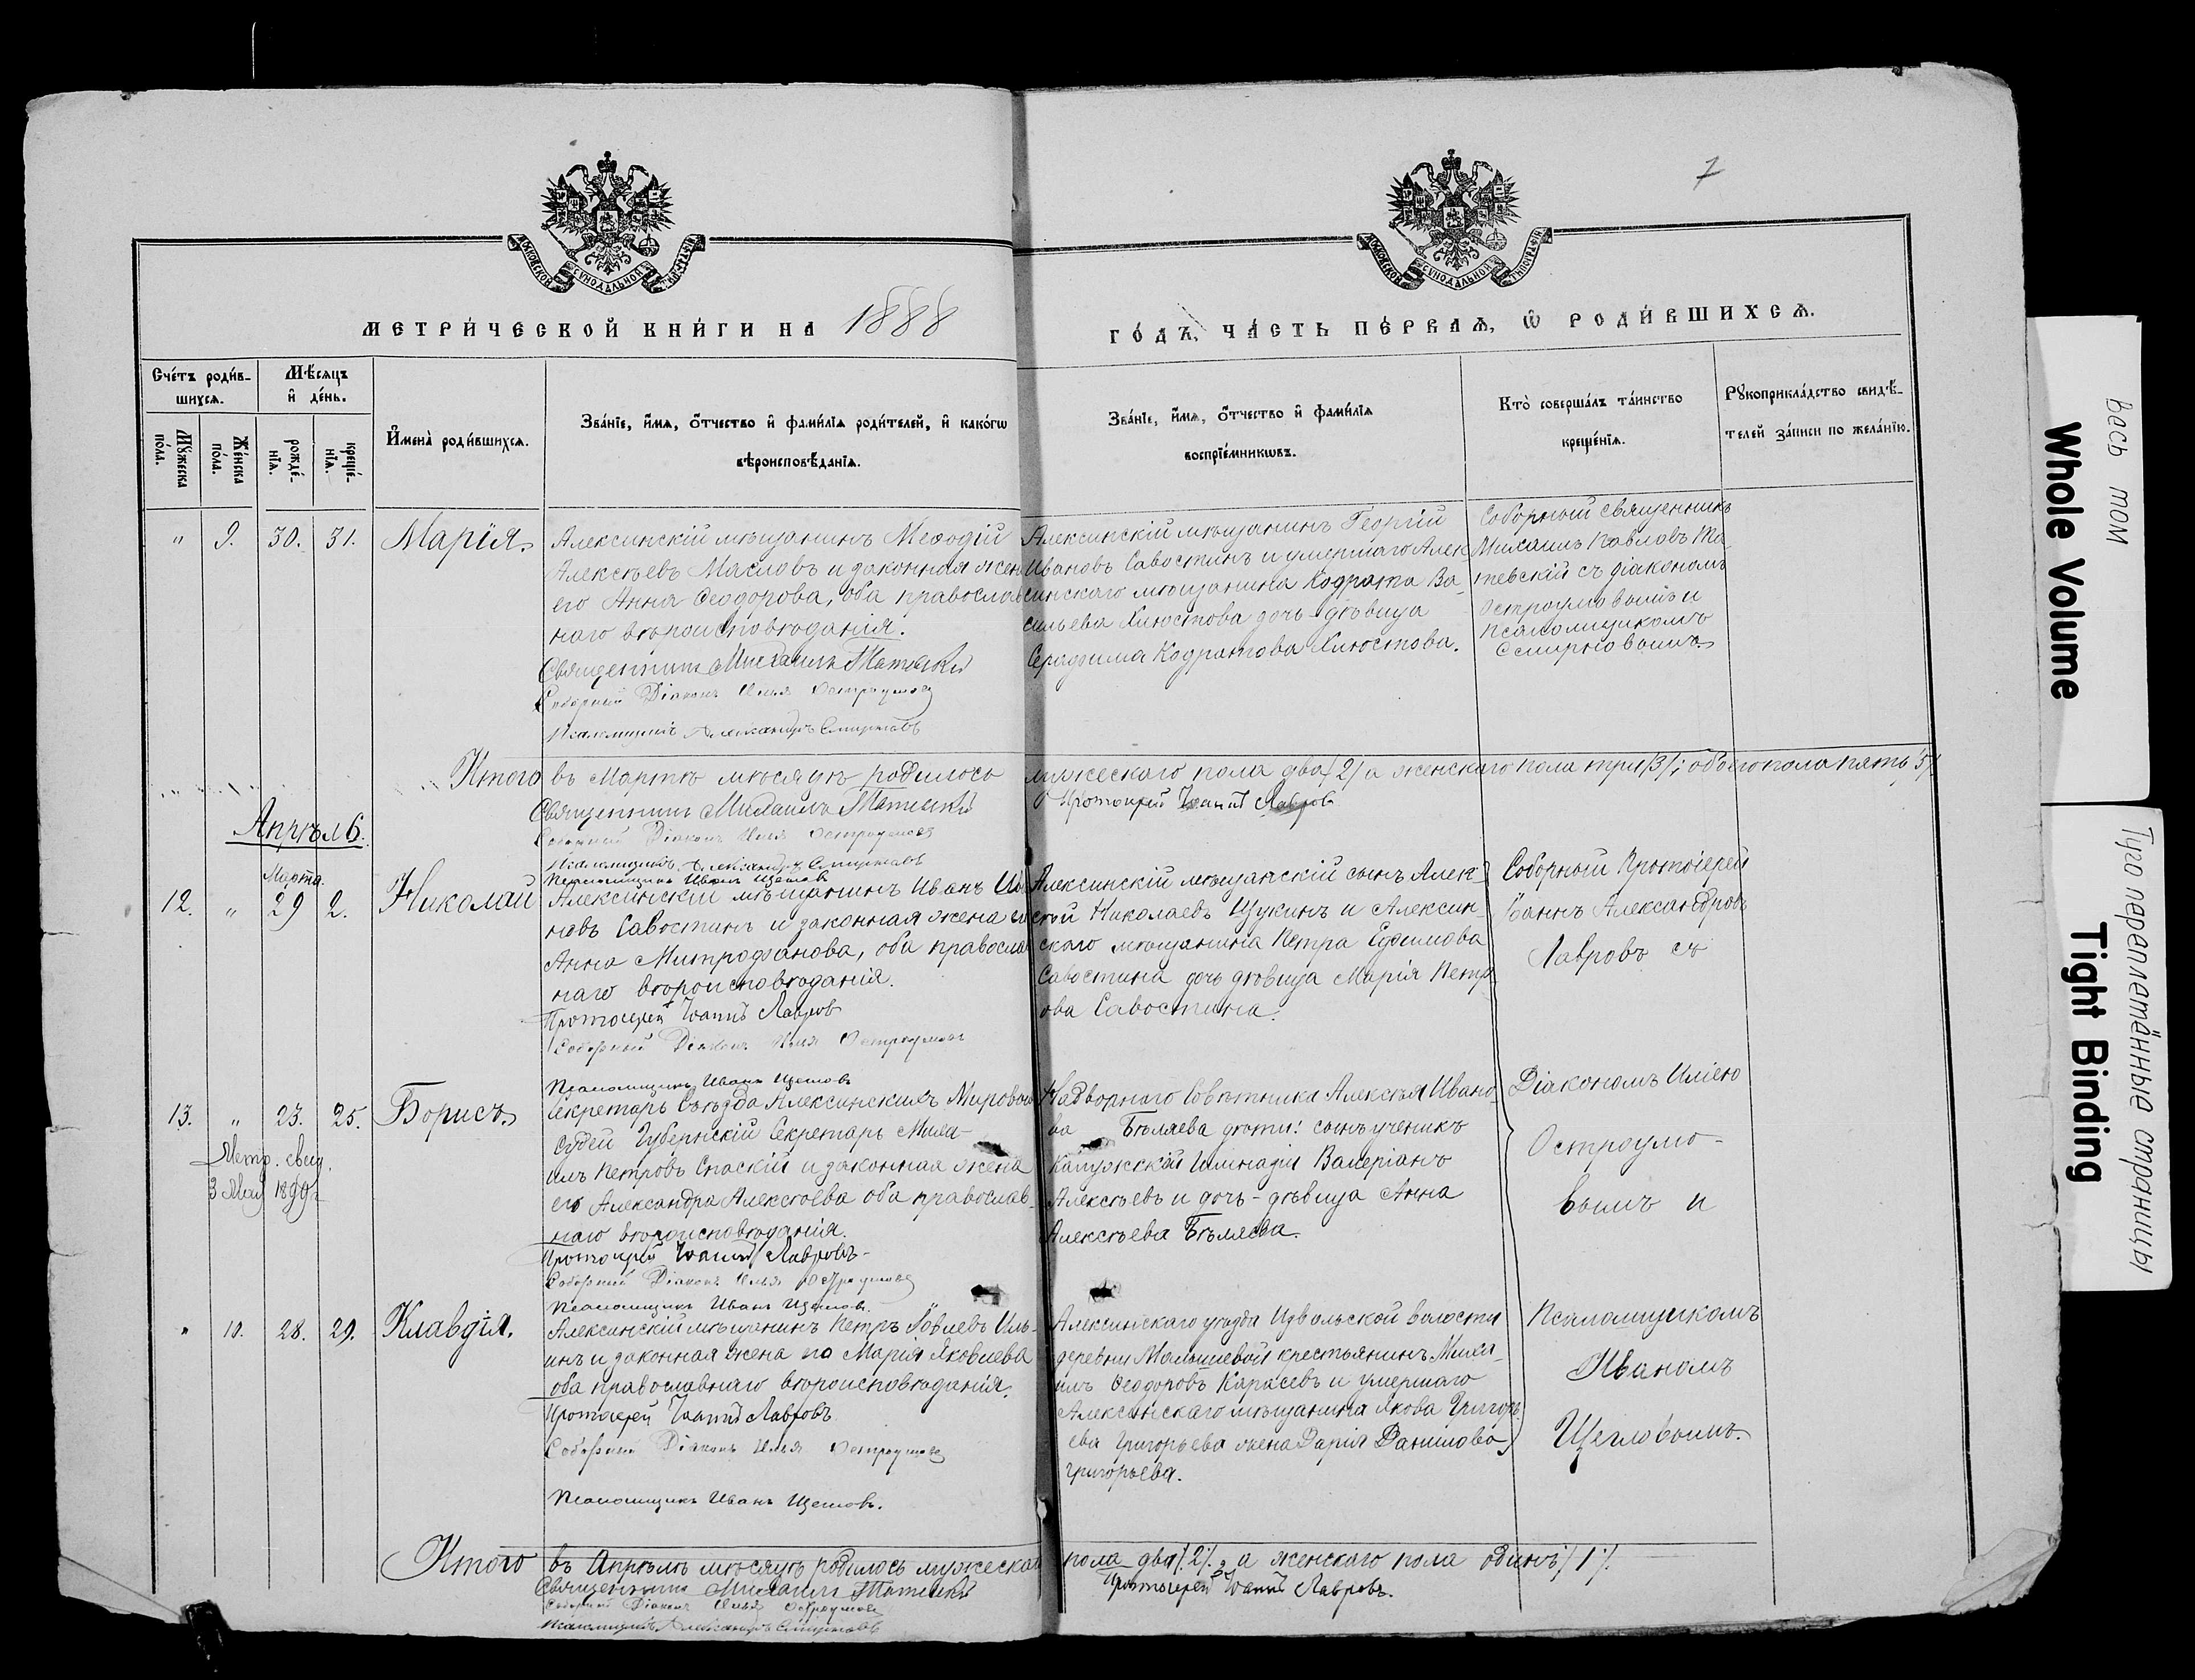 7
МОСКОВСКОЙ СѴНОДАЛЬНОЙ ТѴПОГРАФІИ
МОСКОВСКОЙ СѴНОДАЛЬНОЙ ТѴПОГРАФІИ
МЕТРИ́ЧЕСКОЙ КНИ́ГИ НА 1888
ГО́ДЪ, ЧА́СТЬ ПЕ́РВАѦ, Ѡ҆ РОДИ́ВШИХСѦ.
Сче́тъ роди́в-
шихсѧ.
Мѣ́сѧцъ
и҆ де́нь.
Мꙋ́жеска
по́ла.
Же́нска
по́ла.
рожде́-
нїѧ.
креще́-
нїѧ.
И҆мена̀ роди́вшихсѧ.
Зва́нїе, и҆́мѧ, ѻ҆́тчество и҆ фами́лїѧ роди́телей, и҆ како́гѡ
вѣроисповѣ́данїѧ.
Зва́нїе, и҆́мѧ, ѻ҆́тчество и҆ фами́лїѧ
воспрїе́мникѡвъ.
Кто̀ соверша́лъ та́инство
креще́нїѧ.
Рꙋкоприкла́дство свидѣ́-
телей за́писи по жела́нїю.
" 9. 30. 31. Марія.
Алексинскій мѣщанинъ Меѳодій
Алексѣевъ Масловъ и законная жен
его Анна Ѳеодорова, оба православ
наго вѣроисповѣданія.
Священникъ Михаилъ
Соборный Діаконъ Илія Остроумовъ
Псаломщикъ Александръ Смирновъ
Алексинскій мѣщанинъ Георгій
Ивановъ Савостинъ и умершаго Алек-
синскаго мѣщанина Кодрата Ва-
сильева Хлюстова дочь-дѣвица
Серафима Кодратова Хлюстова.
Соборный Священникъ
Михаилъ Павловъ
съ діакономъ
Остроумовымъ и
псаломщикомъ
Смирновымъ.
Итого въ Мартѣ мѣсяцѣ родилось мужескаго пола два /2/ а женскаго пола три /3/; обоего пола пять /5/
Священникъ Михаилъ
Протоіерей Іоаннъ Лавровъ
Соборный Діаконъ Илія Остроумовъ
Псаломщикъ Александръ Смирновъ
Псаломщикъ Иванъ Щегловъ
Апрѣль.
Марта
12. " 29 2. Николай
Алексинскій мѣщанинъ Иванъ Ива
новъ Савостинъ и законная жена его
Анна Митрофанова, оба православ
наго вѣроисповѣданія.
Протоіерей Іоаннъ Лавровъ
Соборный Діаконъ Илія Остроумовъ
Псаломщикъ Иванъ Щегловъ
Алексинскій мѣщанскій сынъ Алек-
сѣй Николаевъ Щукинъ и Алексин-
скаго мѣщанина Петра Ефимова
Савостина дочь дѣвица Марія Петр
ова Савостина.
Соборный Протоіерей
Іоаннъ Александровъ
Лавровъ съ
13. " 23. 25. Борисъ
Метр. свид.
3 Мая 1899
Секретарь Съѣзда Алексинскихъ Мировыхъ
Судей Губернскій Секретарь Миха-
илъ Петровъ Спаскій и законная жена
его Александра Алексѣева оба православ-
наго вѣроисповѣданія.
Протоіерей Іоаннъ Лавровъ
Соборный Діаконъ Илія Остроумовъ
Псаломщикъ Иванъ Щегловъ.
Надворнаго Совѣтника Алексѣя Ивано-
ва Бѣляева дѣти: сынъ ученикъ
Калужской Гимназіи Валеріанъ
Алексѣевъ и дочь-дѣвица Анна
Алексѣева Бѣляева.
Діакономъ Иліею
Остроумо-
вымъ и
" 10. 28. 29. Клавдія.
Алексинскій мѣщанинъ Петръ Іовлевъ Иль-
инъ и законная жена его Марія Яковлева
оба православнаго вѣроисповѣданія.
Протоіерей Іоаннъ Лавровъ
Соборный Діаконъ Илія Остроумовъ
Псаломщикъ Иванъ Щегловъ.
Алексинскаго уѣзда Извольской волости
деревни Малышевой крестьянинъ Миха-
илъ Ѳеодоровъ Карасевъ и умершаго
Алексинскаго мѣщанина Якова Григорь
ева Григорьева жена Дарія Данилова
Григорьева.
Псаломщикомъ
Иваномъ
Щегловымъ.
Итого въ Апрѣлѣ мѣсяцѣ родилось мужескаго пола два /2/., а женскаго пола одинъ /1/.
Священникъ Михаилъ
Протоіерей Іоаннъ Лавровъ.
Соборный Діаконъ Илія Остроумовъ
Псаломщикъ Александръ Смирновъ
весь том
Whole Volume
Туго переплетённые страницы
Tight Binding